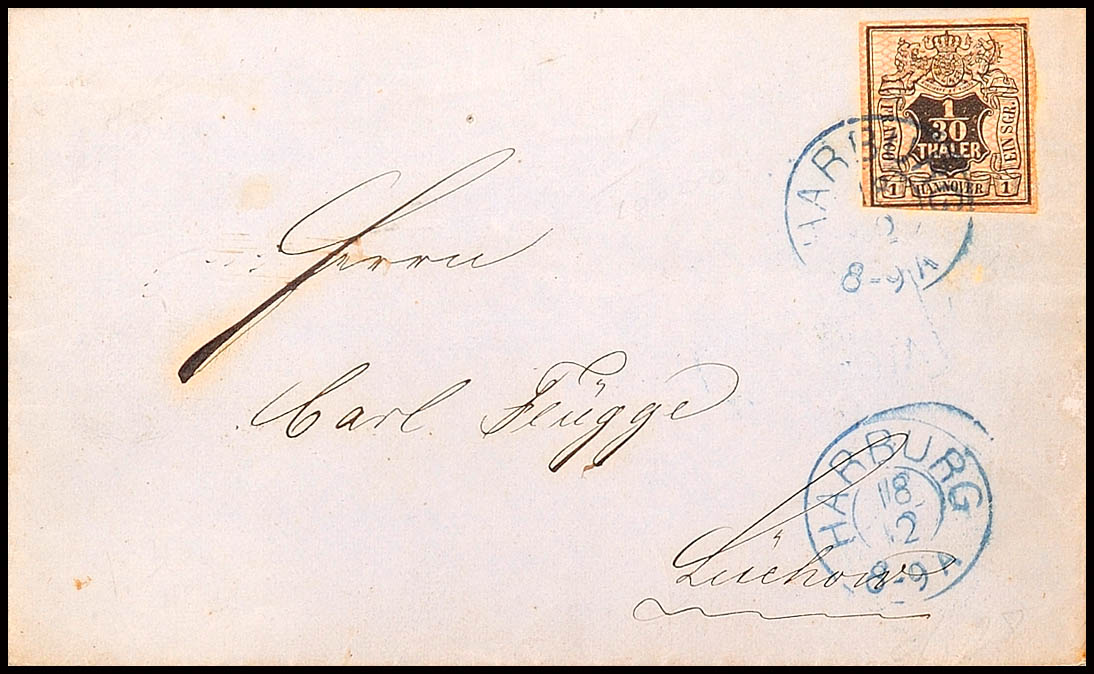 1
30
THALER
FRANCO
EIN SGR.
1 HANNOVER 1
HARB
8-9 A
Herrn
Carl Flügge
Lüchow
HARBURG
18
12
8-9 A